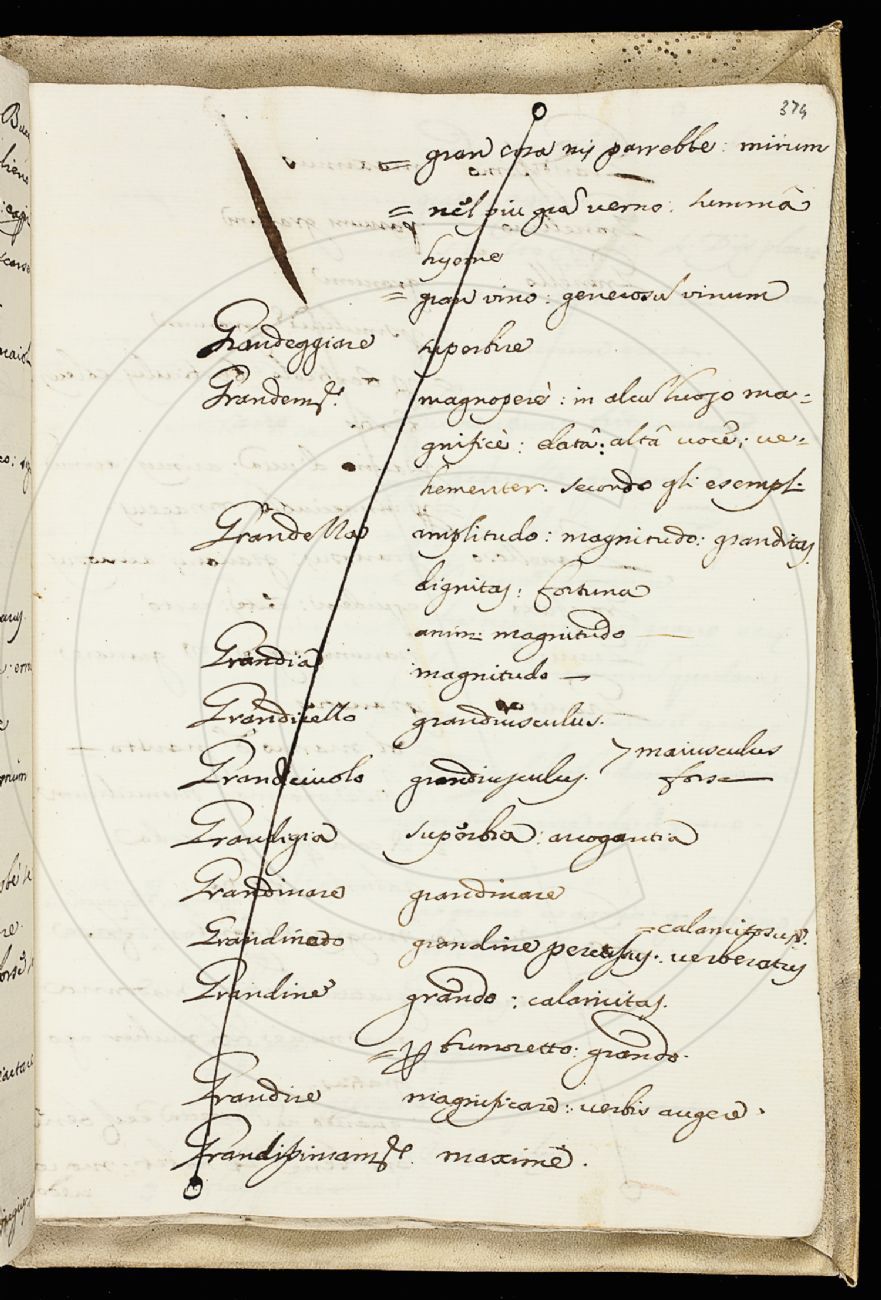 374
= gran cosa mi parrebbe: mirum
= nel piu gra᷉ verno: summâ
hyeme
= gran vino: generosu᷉ vinum
Grandeggiare superbire
Grandem.te magnoperè: in alcu᷉ luogo ma=
gnificè: elatâ: altâ voce: ve=
hementer. secondo gli esempl:
Grandezza amplitudo: magnitudo: granditas
dignitas: fortuna
anim: magnitudo —
Grandia magnitudo —
Grandicello grandiusculus.
Grandiciuolo grandiusculus. > maiusculus
forse —
Grandigia superbia: arrogantia
Grandinare grandinare
=calamitosus.
Grandinado grandine percussus: verberatus
Grandine grando: calamitas.
= p tumoretto: grando.
Grandire magnificare: verbis augere.
Grandissimam.te maximè.